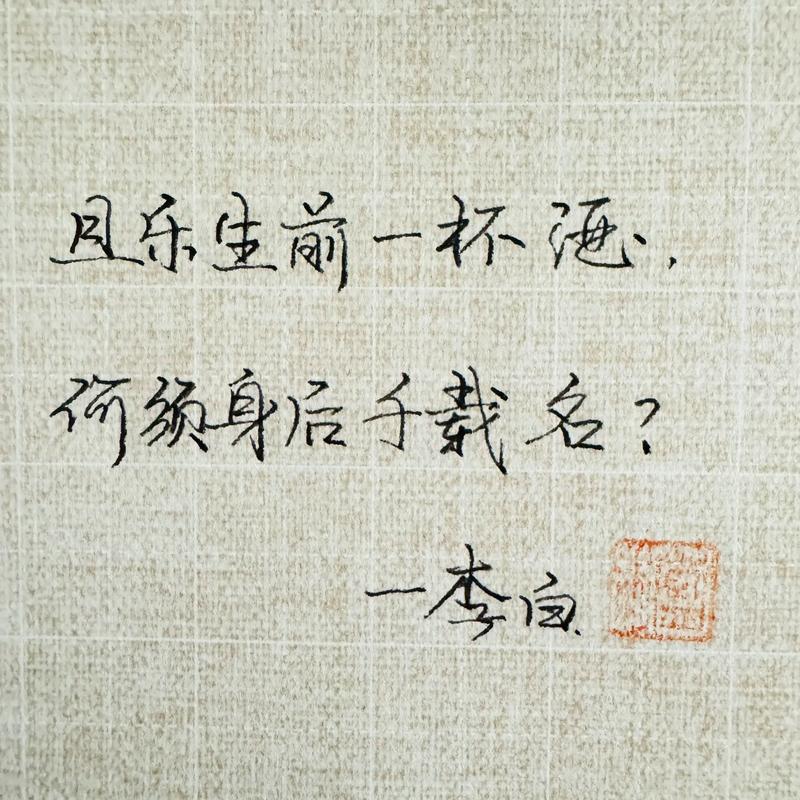 且乐生前一杯酒，
何须身后千载名？
—李白